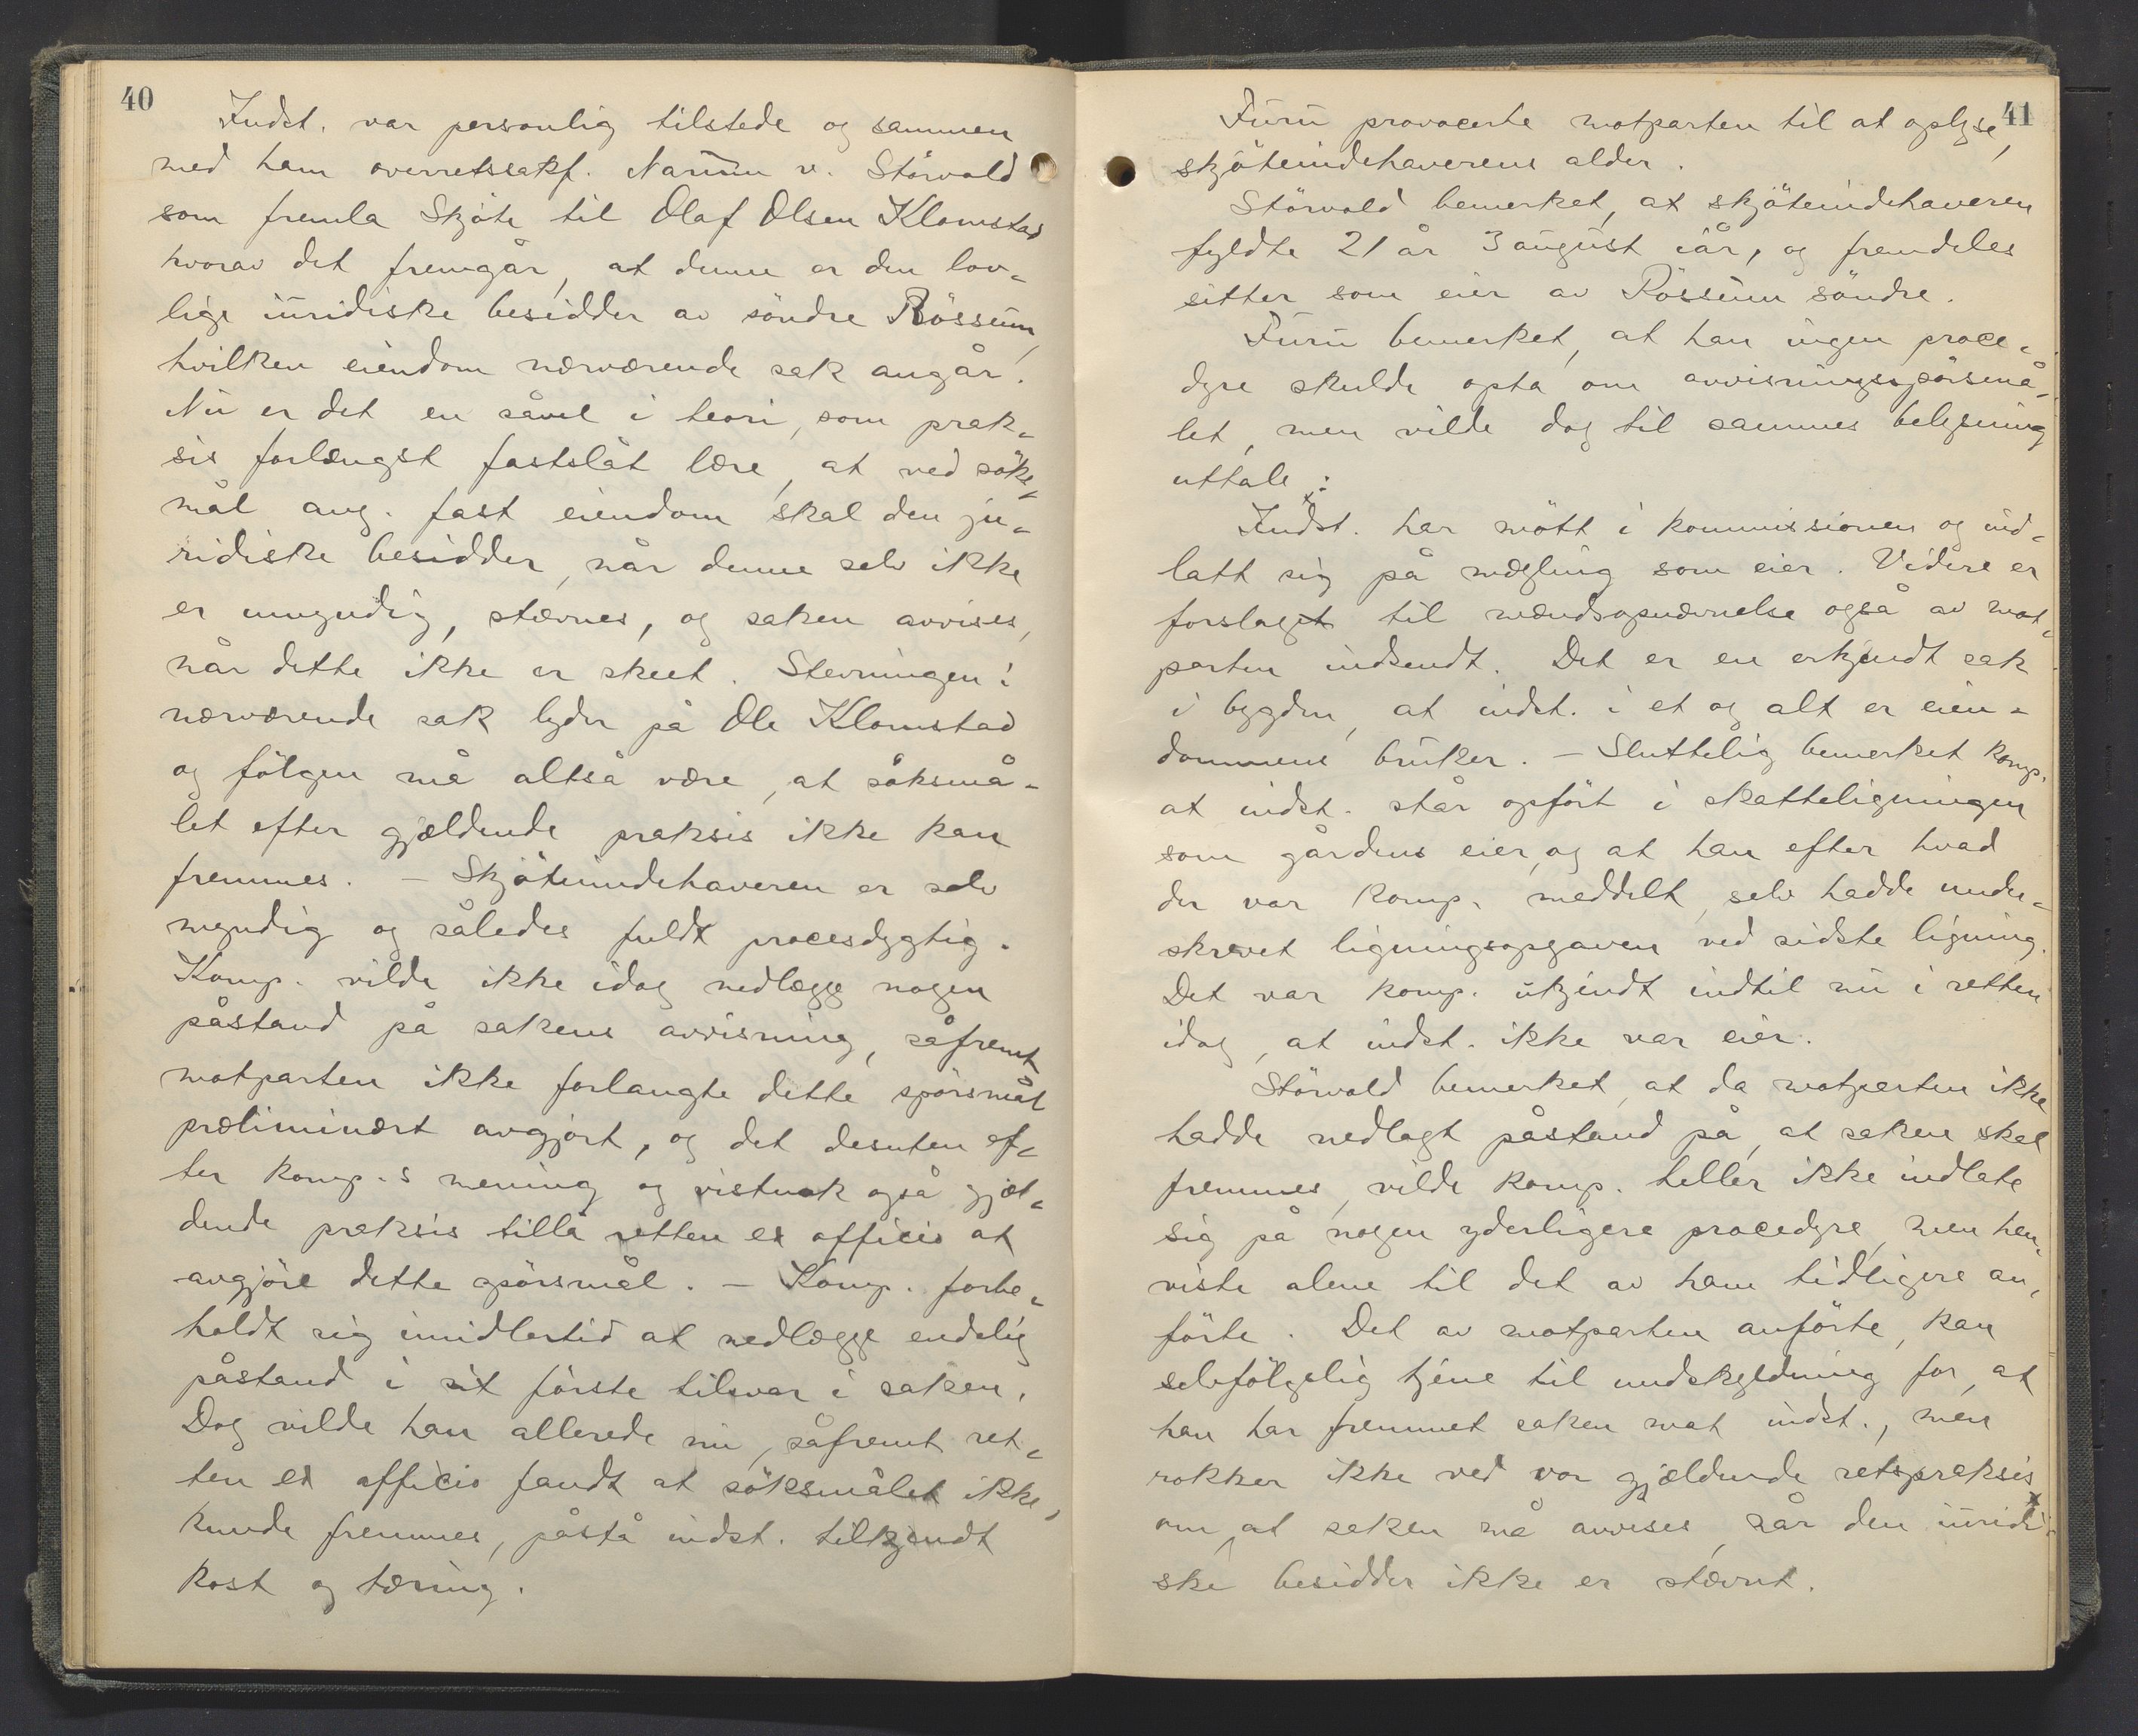 40
Indst. var personlig tilstede og sammen
med ham overretssakf. Narum v. Störvold
som fremla Skjöte til Olaf Olsen Klomstad
hvorav det fremgår, at denne er den lov-
lige iuridiske besidder av söndre Rössum,
hvilken eiendom nærværende sak angår.
Nu er det en såvel i teori, som prak-
sis forlængst fastslåt lære, at ved söks-
mål ang. fast eiendom skal den ju-
ridiske besidder, når denne selv ikke
er umyndig, stævnes, og saken avvises,
når dette ikke er skeet. Stevningen i
nærværende sak lyder på Ole Klomstad
og fölgen må altså være, at söksmå-
let efter gjældende praksis ikke kan
fremmes. – Skjöteindehaveren er selv
myndig og således fuldt procesdygtig.
Komp. vilde ikke idag nedlægge nogen
påstand på sakens avvisning, såfremt
motparten ikke forlangte dette spörsmål
præliminært avgjort, og det desuten ef-
ter komp.s mening og vistnok også gjæl-
dende praksis tillå retten ex officio at
avgjöre dette spörsmål. – Komp. forbe-
holdt sig imidlertid at nedlægge endelig
påstand i sit förste tilsvar i saken.
Dog vilde han allerede nu, såfremt ret-
ten ex officio fandt at söksmålet ikke
kunde fremmes, påstå indst. tilkjendt
kost og tæring.
41
Furu provocerte motparten til at oplyse
skjöteindehaverens alder.
Störvold bemerket, at skjöteindehaveren
fyldte 21 år 3 august iår, og fremdeles
sitter som eier av Rössum söndre.
Furu bemerket, at han ingen proce-
dyre skulde opta om avvisningsspörsmå-
let, men vilde dog til sammes belysning
uttale:
Indst. har mött i kommissionen og ind-
latt sig på mægling som eier. Videre er
forslaget til mændsopnævnelse også av mot-
parten indsendt. Det er en erkjendt sak
i bygden, at indst. i et og alt er eien-
dommens bruker. – Sluttelig bemerket komp.
at indst. står opfört i skatteligningen
som gårdens eier, og at han efter hvad
der var komp. meddelt, selv hadde under-
skrevet ligningsopgaven ved sidste ligning.
Det var komp. ukjendt indtil nu i retten
idag, at indst. ikke var eier.
Störvold bemerket, at da motparten ikke
hadde nedlagt påstand på, at saken skal
fremmes, vilde komp. heller ikke indlate
sig på nogen yderligere procedyre, men hen-
viste alene til det av ham tidligere an-
förte. Det av motparten anförte, kan
selvfölgelig tjene til undskyldning for, at
han har fremmet saken mot indst., men
rokker ikke ved vor gjældende retspraksis
om, at saken må avvises, når den iuridi-
ske besidder ikke er stævnt.